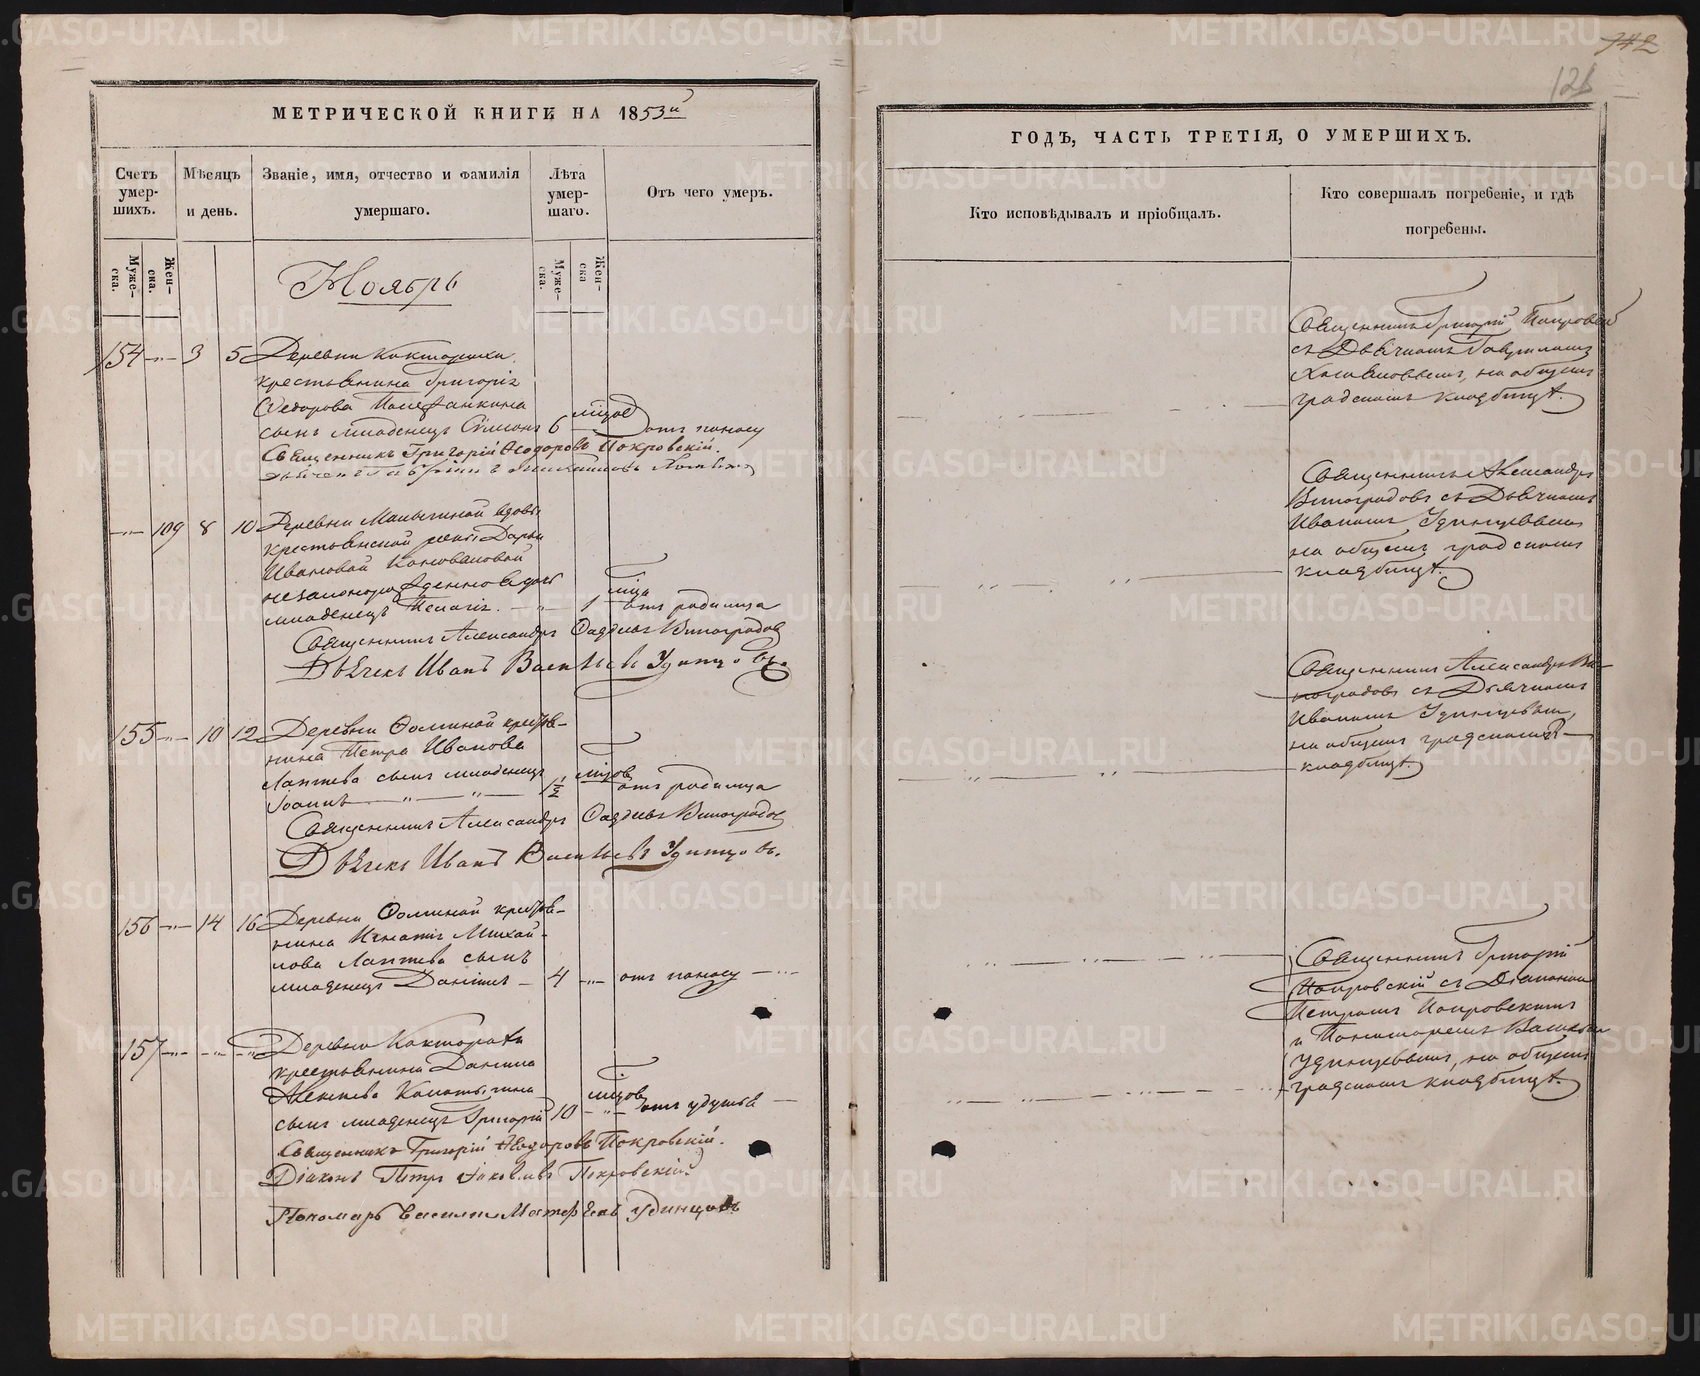 МЕТРИЧЕСКОЙ КНИГИ НА 1853й
Счетъ умер- шихъ.
Мѣсяцъ и день.
Званіе, имя, отчество и фамилія умершаго.
Лѣта умер- шаго.
Отъ чего умеръ.
Муже- ска.
Жен- ска.
Муже- ска.
Жен- ска
Ноябрь
154 3 5 Деревни
крестьянина Григорія
Ѳедорова
сынъ младенецъ Сѵмеонъ 6 мѣцов отъ поносу
Священникъ Григорій Ѳеодоровъ Покровскій.
109 8 10 Деревни Малыгиной вдовы
крестьянской жены Дарьи
Ивановой Коноваловой
незаконорожденно
младенецъ Пелагія. 1 мѣца отъ родимца
Священникъ Александръ Фаддѣевъ Виноградов
Дьячекъ Иванъ Васильевъ Удинцовъ.
155 10 12 Деревни Фоминой крестья-
нина Петра Иванова
Лаптева сынъ младенецъ
Іоаннъ 1½ мѣцов отъ родимца
Священникъ Александръ Фаддѣевъ Виноградов
Дьячекъ Иванъ Васильевъ Удинцовъ.
156 14 16 Деревни Фоминой крестья-
нина Игнатія Михай-
лова Лаптева сынъ
младенецъ Даніилъ 4 отъ поносу
157 Деревни
крестьянина Данила
сынъ младенецъ Григорій 10 мѣцов отъ удушья
Священникъ Григорій Ѳеодоровъ Покровскій.
Діаконъ Петръ Іаковлевъ Покровскій
Пономарь Василій Матфѣевъ Удинцовъ
142
126
ГОДЪ, ЧАСТЬ ТРЕТІЯ, О УМЕРШИХЪ.
Кто исповѣдывалъ и пріобщалъ.
Кто совершалъ погребеніе, и гдѣ погребены.
Священникъ Григорій Покровскій
съ Дьячкомъ Гавриломъ
на общемъ
градскомъ кладбищѣ.
Священникъ Александръ
Виноградовъ съ Дьячкомъ
Иваномъ Удинцевымъ
на общемъ градскомъ
кладбищѣ.
Священникъ Александръ Ви-
ноградовъ съ Дьячкомъ
Иваномъ Удинцевымъ,
на общемъ градскомъ
кладбищѣ.
Священникъ Григорій
Покровскій съ Діакономъ
Петромъ Покровскимъ
и Пономаремъ Василіемъ
Удинцевымъ, на общемъ
градскомъ кладбищѣ.
METRIKI.GASO-URAL.RU